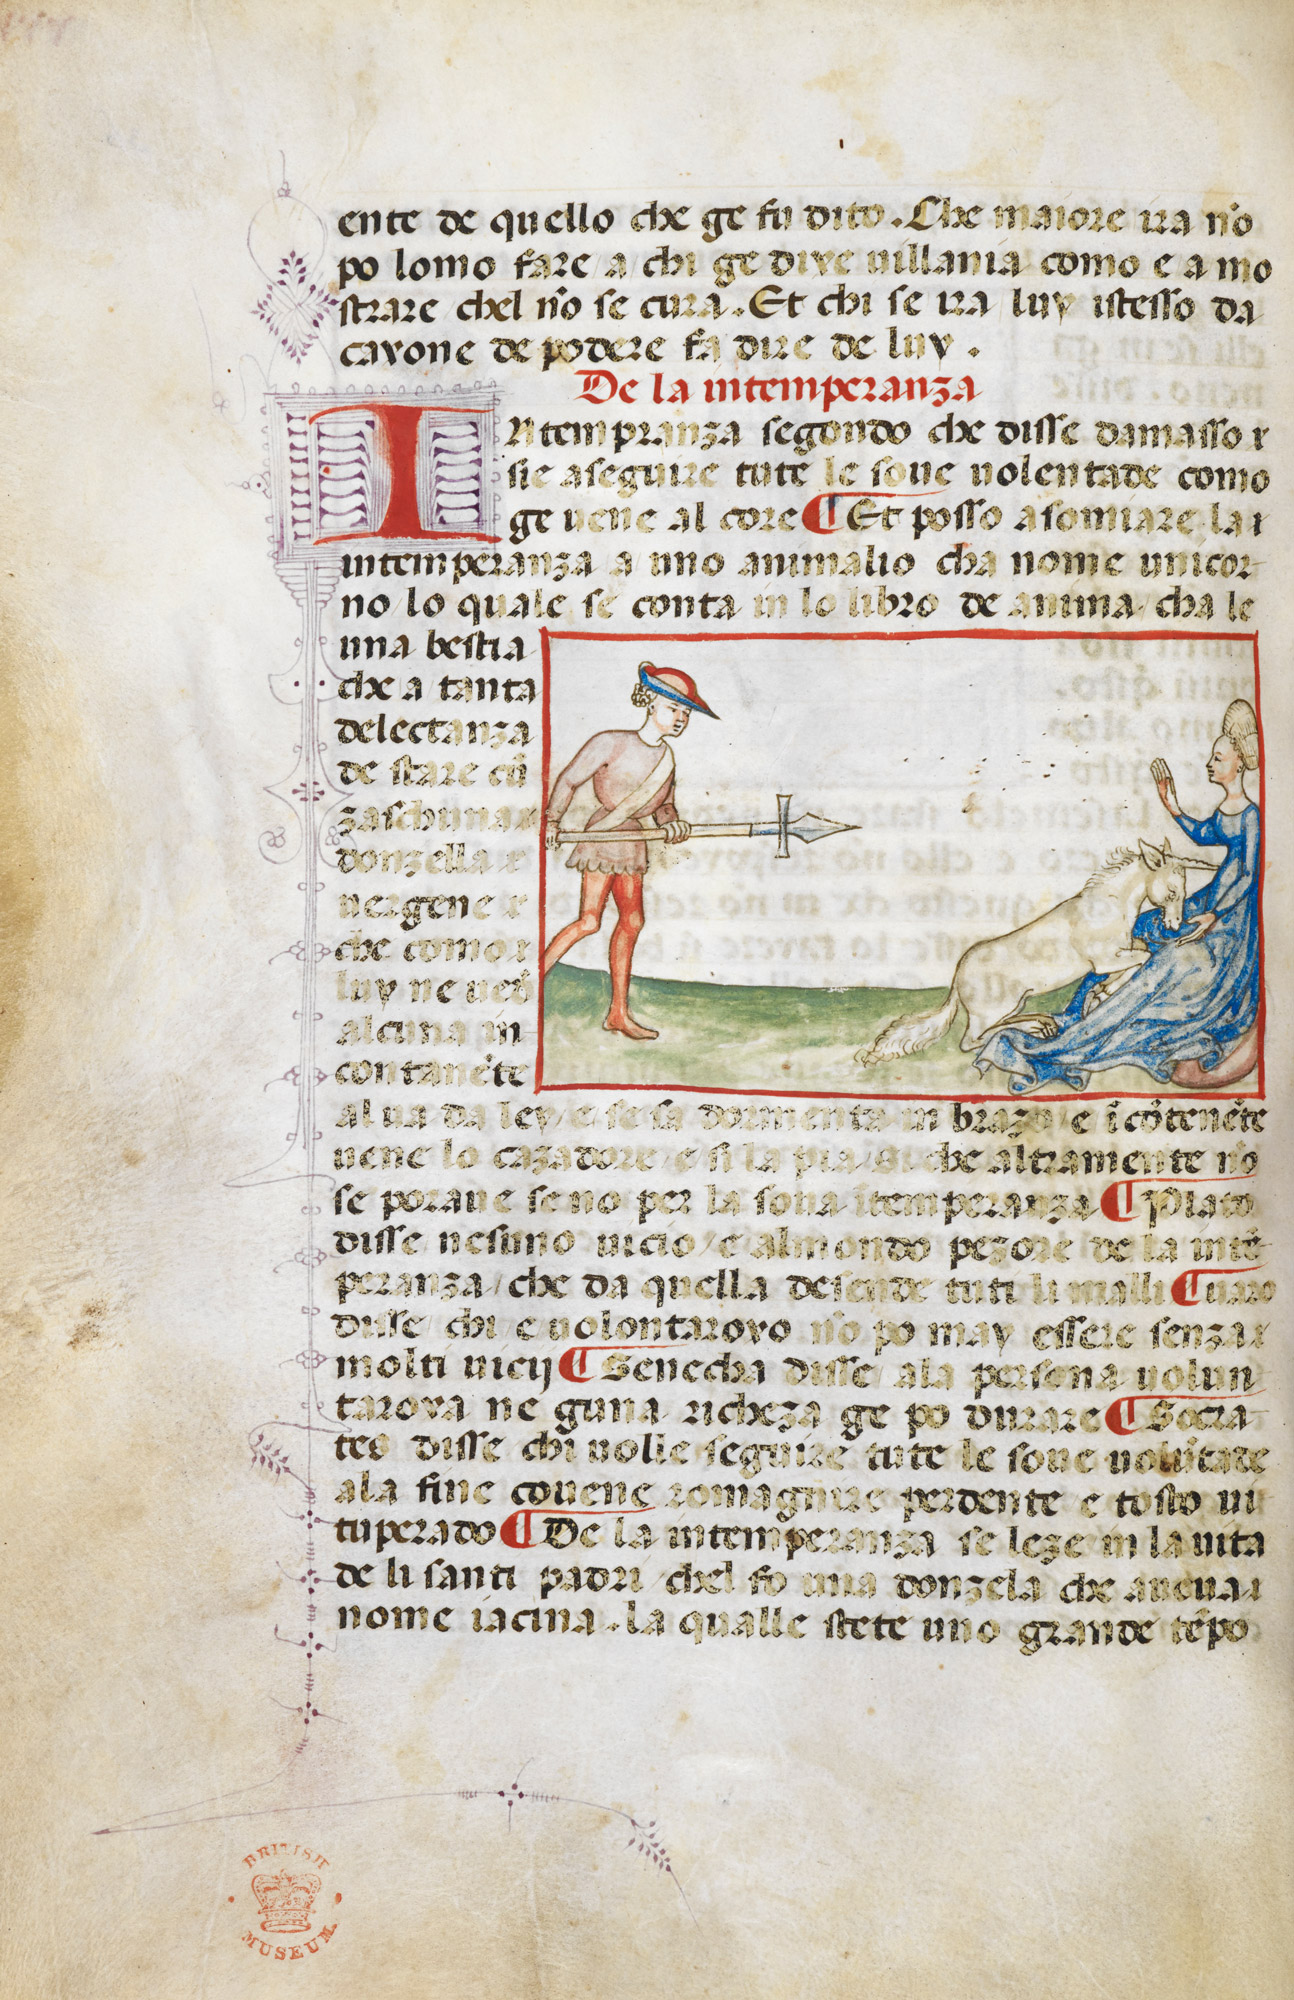 ente de quello che ge fu dito. Che maiore ira nõ
po lomo fare / a chi ge dixe uillania como e a mo
strare chel nõ se cura. Et chi se ira luy istesso da
cayone de podere fa dire de luy.
De la intemperanza
Intempranza segondo che disse damasso
sie aseguire tute le soue uolentade como
ge uene al core Et posso asomiare la
intemperanza a uno animalio cha nome unicor
no / lo quale se conta in lo libro de anima / cha le
una bestia
che a tanta
delectanza
de stare cũ
zaschuna
donzella
uergene
che como
luy ne ueð
alcuna in
contanẽte
al ua da ley / e se sa dormenta in brazo / e ĩ cõtenẽte
uene lo cazadore / e si la pia / si che altramente nõ
se poraue se no per la soua ĩtemperanza Plato
disse nesuno uicio / e almondo pezore de la intẽ
peranza / che da quella desende tuti li malli uaro
disse / chi e uolontaroyo nõ po may essere senza
molti uicij Senecha disse / ala persona uolun
taroya ne guna richeza ge po durare Socra
tes disse chi uolle seguire tute le soue uolũtade
ala fine couene romagnire perdente e tosto ui
tuperado De la intemperanza se leze in la uita
de li santi padri / chel fo una donzela che aueua
nome iacina. la qualle stete uno grande tẽpo
BRITISH
MUSEUM